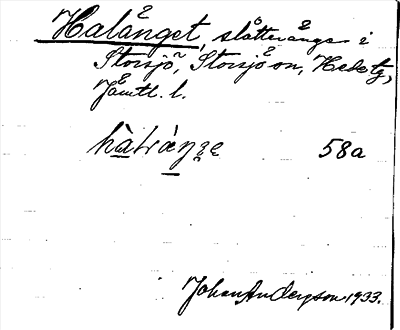 Halänget, slåtteränge i
Storsjö, Storsjö sn, Hede tg,
Jämtl. l.
58a
Johan Anderson 1933.